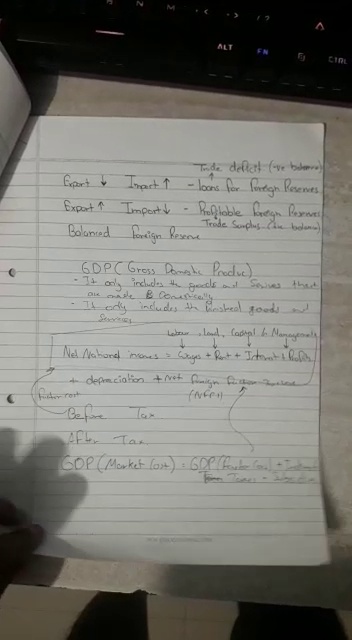 ALT
FN
CTRL
Trade deficit (-ve balance)
Export ↓ Import ↑ - loans for foreign Reserves
Export ↑ Import ↓ - Profitable foreign Reserves
Trade Surplus
Balanced foreign Reserve
GDP (Gross Domestic Produc)
- It only includes the goods and Services that
are made Domestically
- It only includes the goods and
Services
Labour, land, Capital &
Net National = Wages + Rent + Interest + Profits
+ depreciation + Net foreign
factor cost
(NFI)
Before Tax
After Tax
GDP (Market Cost) = GDP (Factor Cost) +
Taxes -